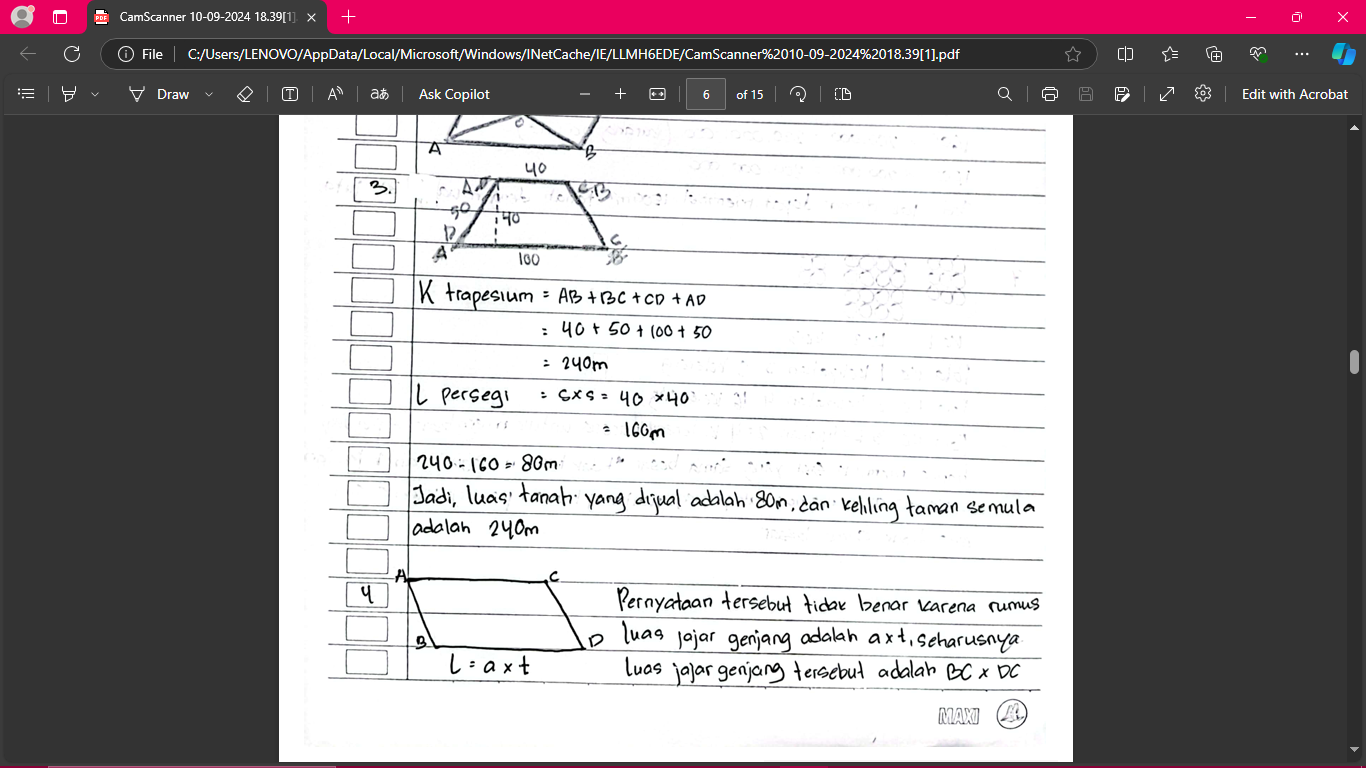 CamScanner 10-09-2024 18.39[1]
File
C:/Users/LENOVO/AppData/Local/Microsoft/Windows/INetCache/IE/LLMH6EDE/CamScanner%2010-09-2024%2018.39[1].pdf
Draw
aあ
Ask Copilot
6
of 15
Edit with Acrobat
A
B
40
3.
A
B
50
40
D
C
A
B
100
K trapesium = AB + BC + CD + AD
= 40 + 50 + 100 + 50
= 240m
L persegi = s x s = 40 x 40
= 160m
240 - 160 = 80m
Jadi, luas tanah yang dijual adalah 80m, dan keliling taman semula
adalah 240m
A
C
4
Pernyataan tersebut tidak benar karena rumus
B
D
luas jajar genjang adalah a x t, seharusnya
L = a x t
luas jajar genjang tersebut adalah BC x DC
MAXI